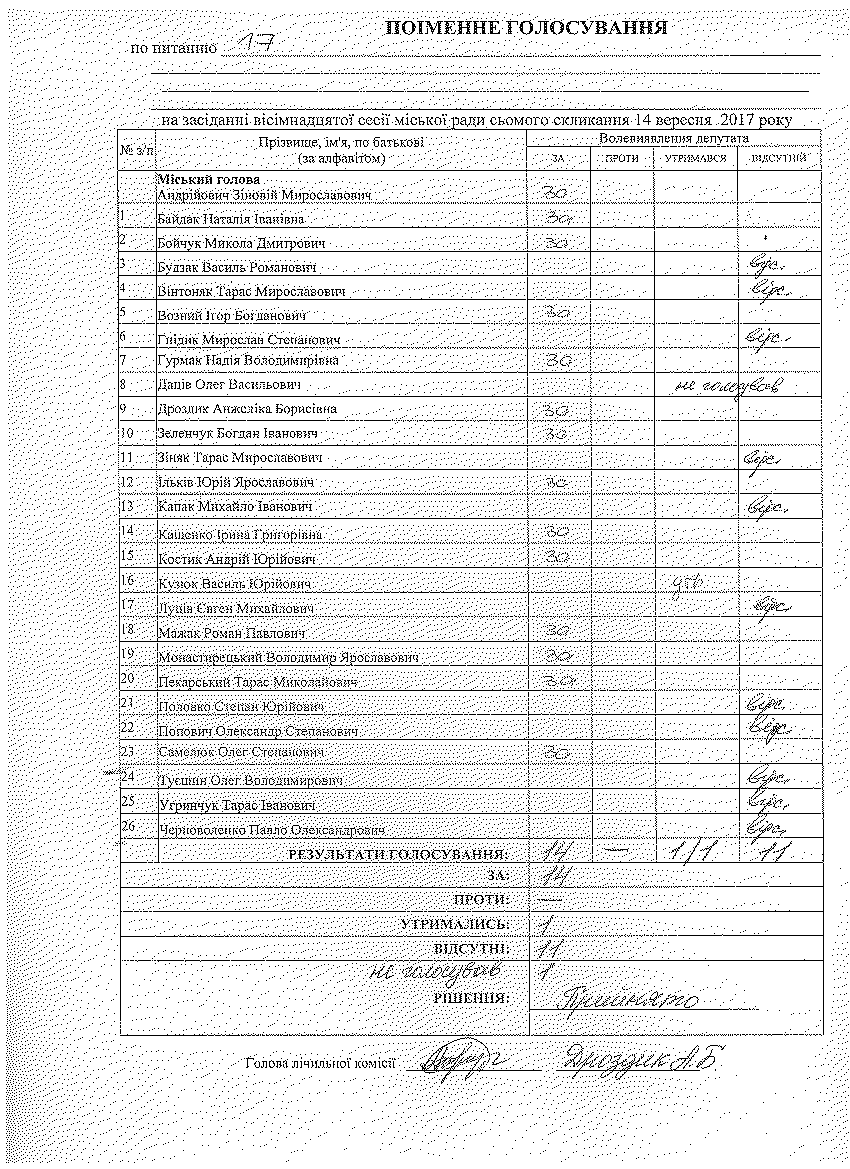 ПОІМЕННЕ ГОЛОСУВАННЯ
по питанню 17
на засіданні вісімнадцятої сесії міської ради сьомого скликання 14 вересня 2017 року
№ з/п Прізвище, ім'я, по батькові (за алфавітом) Волевиявлення депутата
ЗА ПРОТИ УТРИМАВСЯ ВІДСУТНІЙ
Міський голова
Андрійович Зіновій Мирославович за
1 Байдак Наталія Іванівна за
2 Бойчук Микола Дмитрович за
3 Будзак Василь Романович відс.
4 Вінтоняк Тарас Мирославович відс.
5 Возний Ігор Богданович за
6 Гнідик Мирослав Степанович відс.
7 Гурмак Надія Володимирівна за
8 Даців Олег Васильович не голосував
9 Дроздик Анжеліка Борисівна за
10 Зеленчук Богдан Іванович за
11 Зіняк Тарас Мирославович відс.
12 Ільків Юрій Ярославович за
13 Капак Михайло Іванович відс.
14 Кащенко Ірина Григорівна за
15 Костик Андрій Юрійович за
16 Кузюк Василь Юрійович утр.
17 Луців Євген Михайлович відс.
18 Мажак Роман Павлович за
19 Монастирецький Володимир Ярославович за
20 Пекарський Тарас Миколайович за
21 Половко Степан Юрійович відс.
22 Попович Олександр Степанович відс.
23 Самелюк Олег Степанович за
24 Туєшин Олег Володимирович відс.
25 Угринчук Тарас Іванович відс.
26 Черноволенко Павло Олександрович відс.
РЕЗУЛЬТАТИ ГОЛОСУВАННЯ: 14 — 1/1 11
ЗА: 14
ПРОТИ: —
УТРИМАЛИСЬ: 1
ВІДСУТНІ: 11
не голосував 1
РІШЕННЯ: Прийнято
Голова лічильної комісії Дроздик А.Б